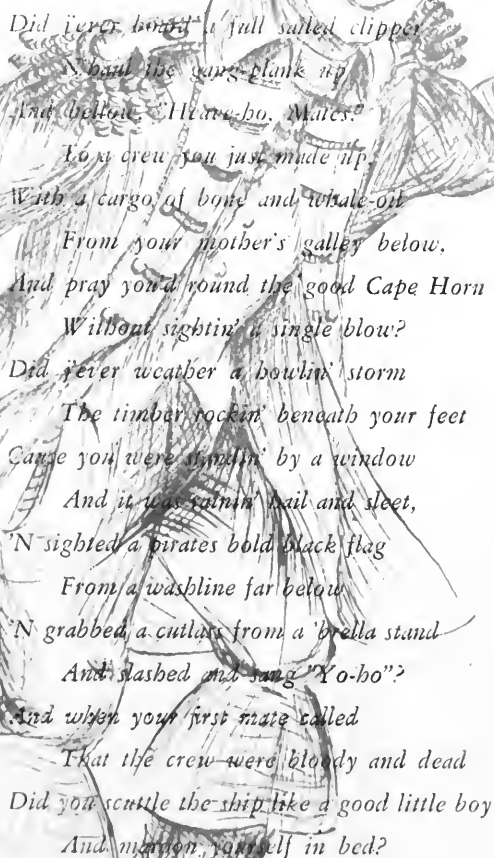 Did j'ever board a full sailed clipper
'N haul the gang-plank up
And bellow, "Heave-ho, Mates!"
To a crew you just made up,
With a cargo of bone and whale-oil
From your mother's galley below,
And pray you'd round the good Cape Horn
Without sightin' a single blow?
Did j'ever weather a howlin' storm
The timber rockin' beneath your feet
Cause you were standin' by a window
And it was rainin' hail and sleet,
'N sighted a pirates bold black flag
From a washline far below
'N grabbed a cutlass from a 'brella stand
And slashed and sang "Yo-ho"?
And when your first mate called
That the crew were bloody and dead
Did you scuttle the ship like a good little boy
And maroon yourself in bed?